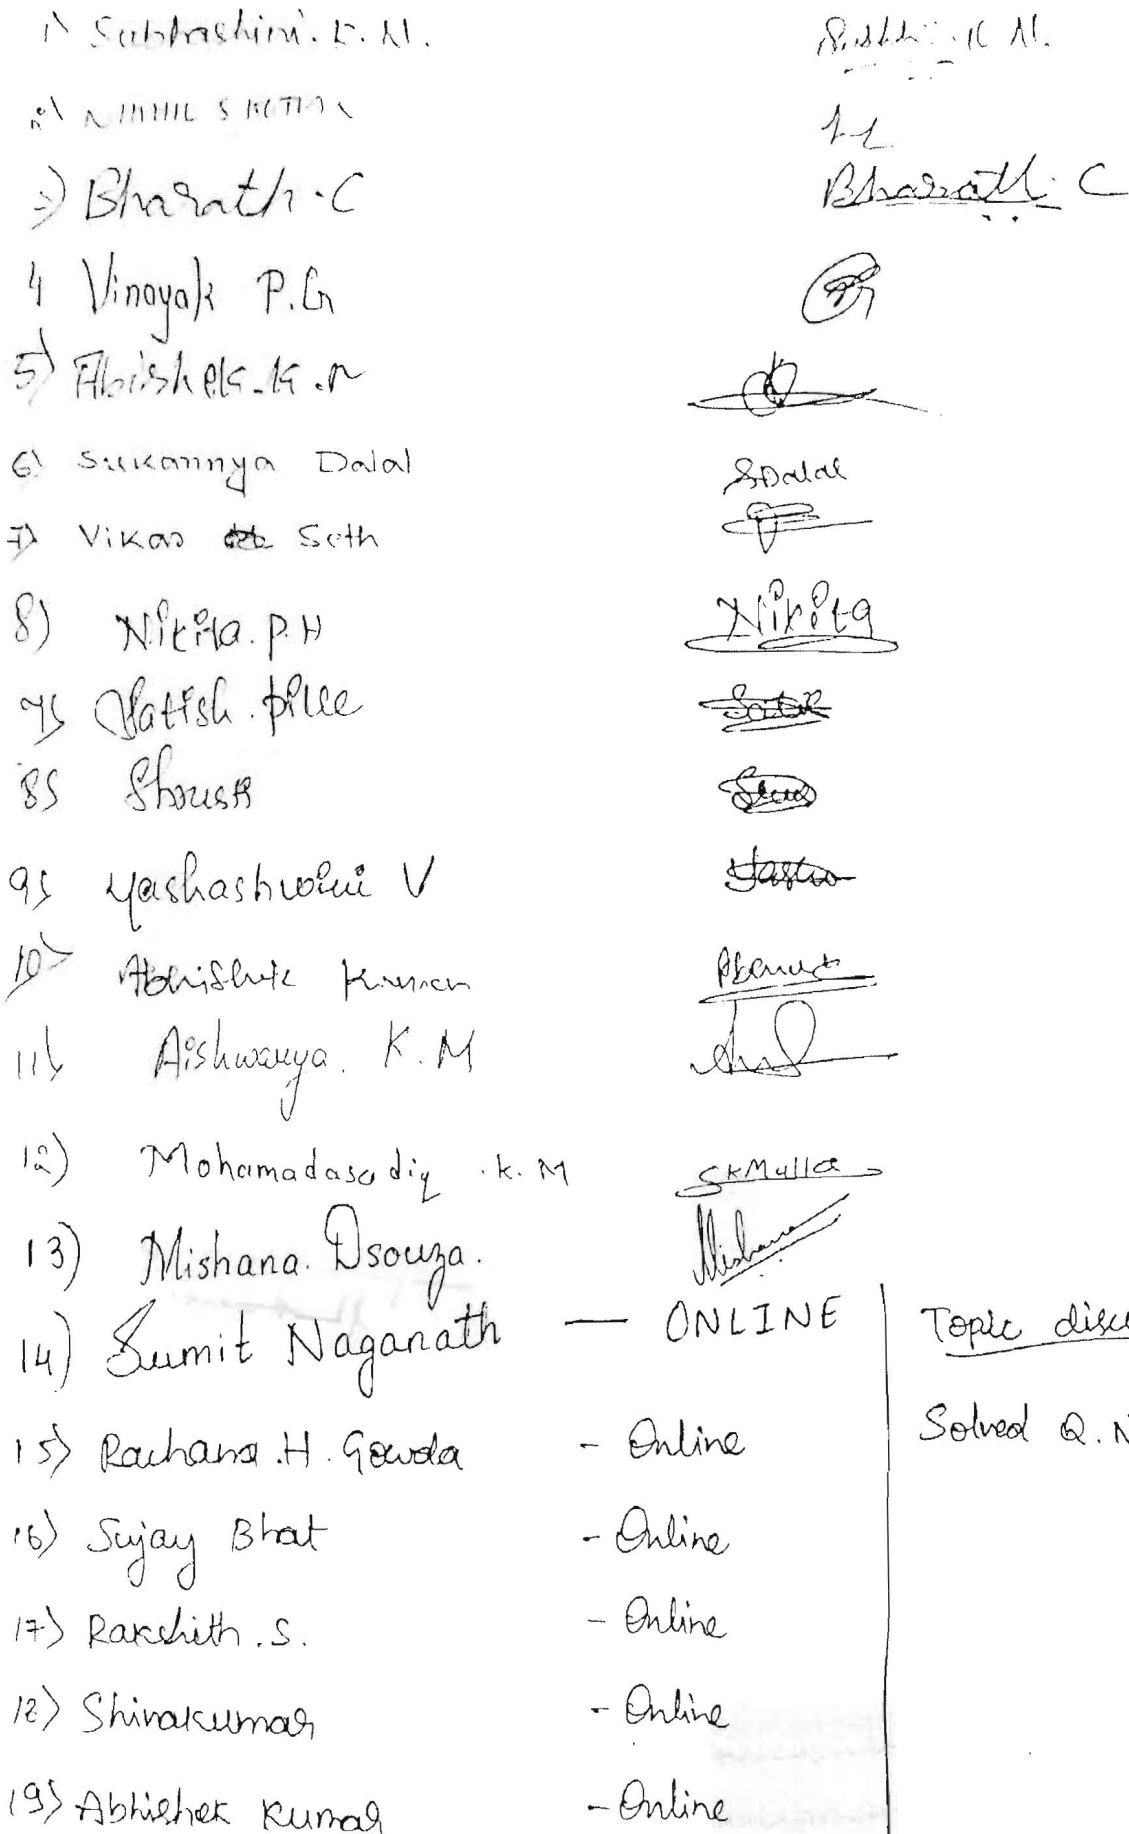 1) Subhashini. K. M.
2) NIKHIL S
3) Bharath. C Bharath. C
4 Vinayak P.G
5) Abishek. K. N
6) Sukannya Dalal SDalal
7) Vikas Seth
8) Nikita. P. H Nikita
7) Satish.
8)
9) Yashashwini V
10) Abhishek Kumar
11) Aishwarya. K. M
12) Mohamadasadiq .K. M SKMulla
13) Mishana. Dsouza. Mishana
14) Sumit Naganath — ONLINE Topic
15) Rachana .H. Gowda - Online Solved Q.
16) Sujay Bhat - Online
17) Rakshith .S. - Online
18) Shivakumar - Online
19) Abhishek Kumar - Online